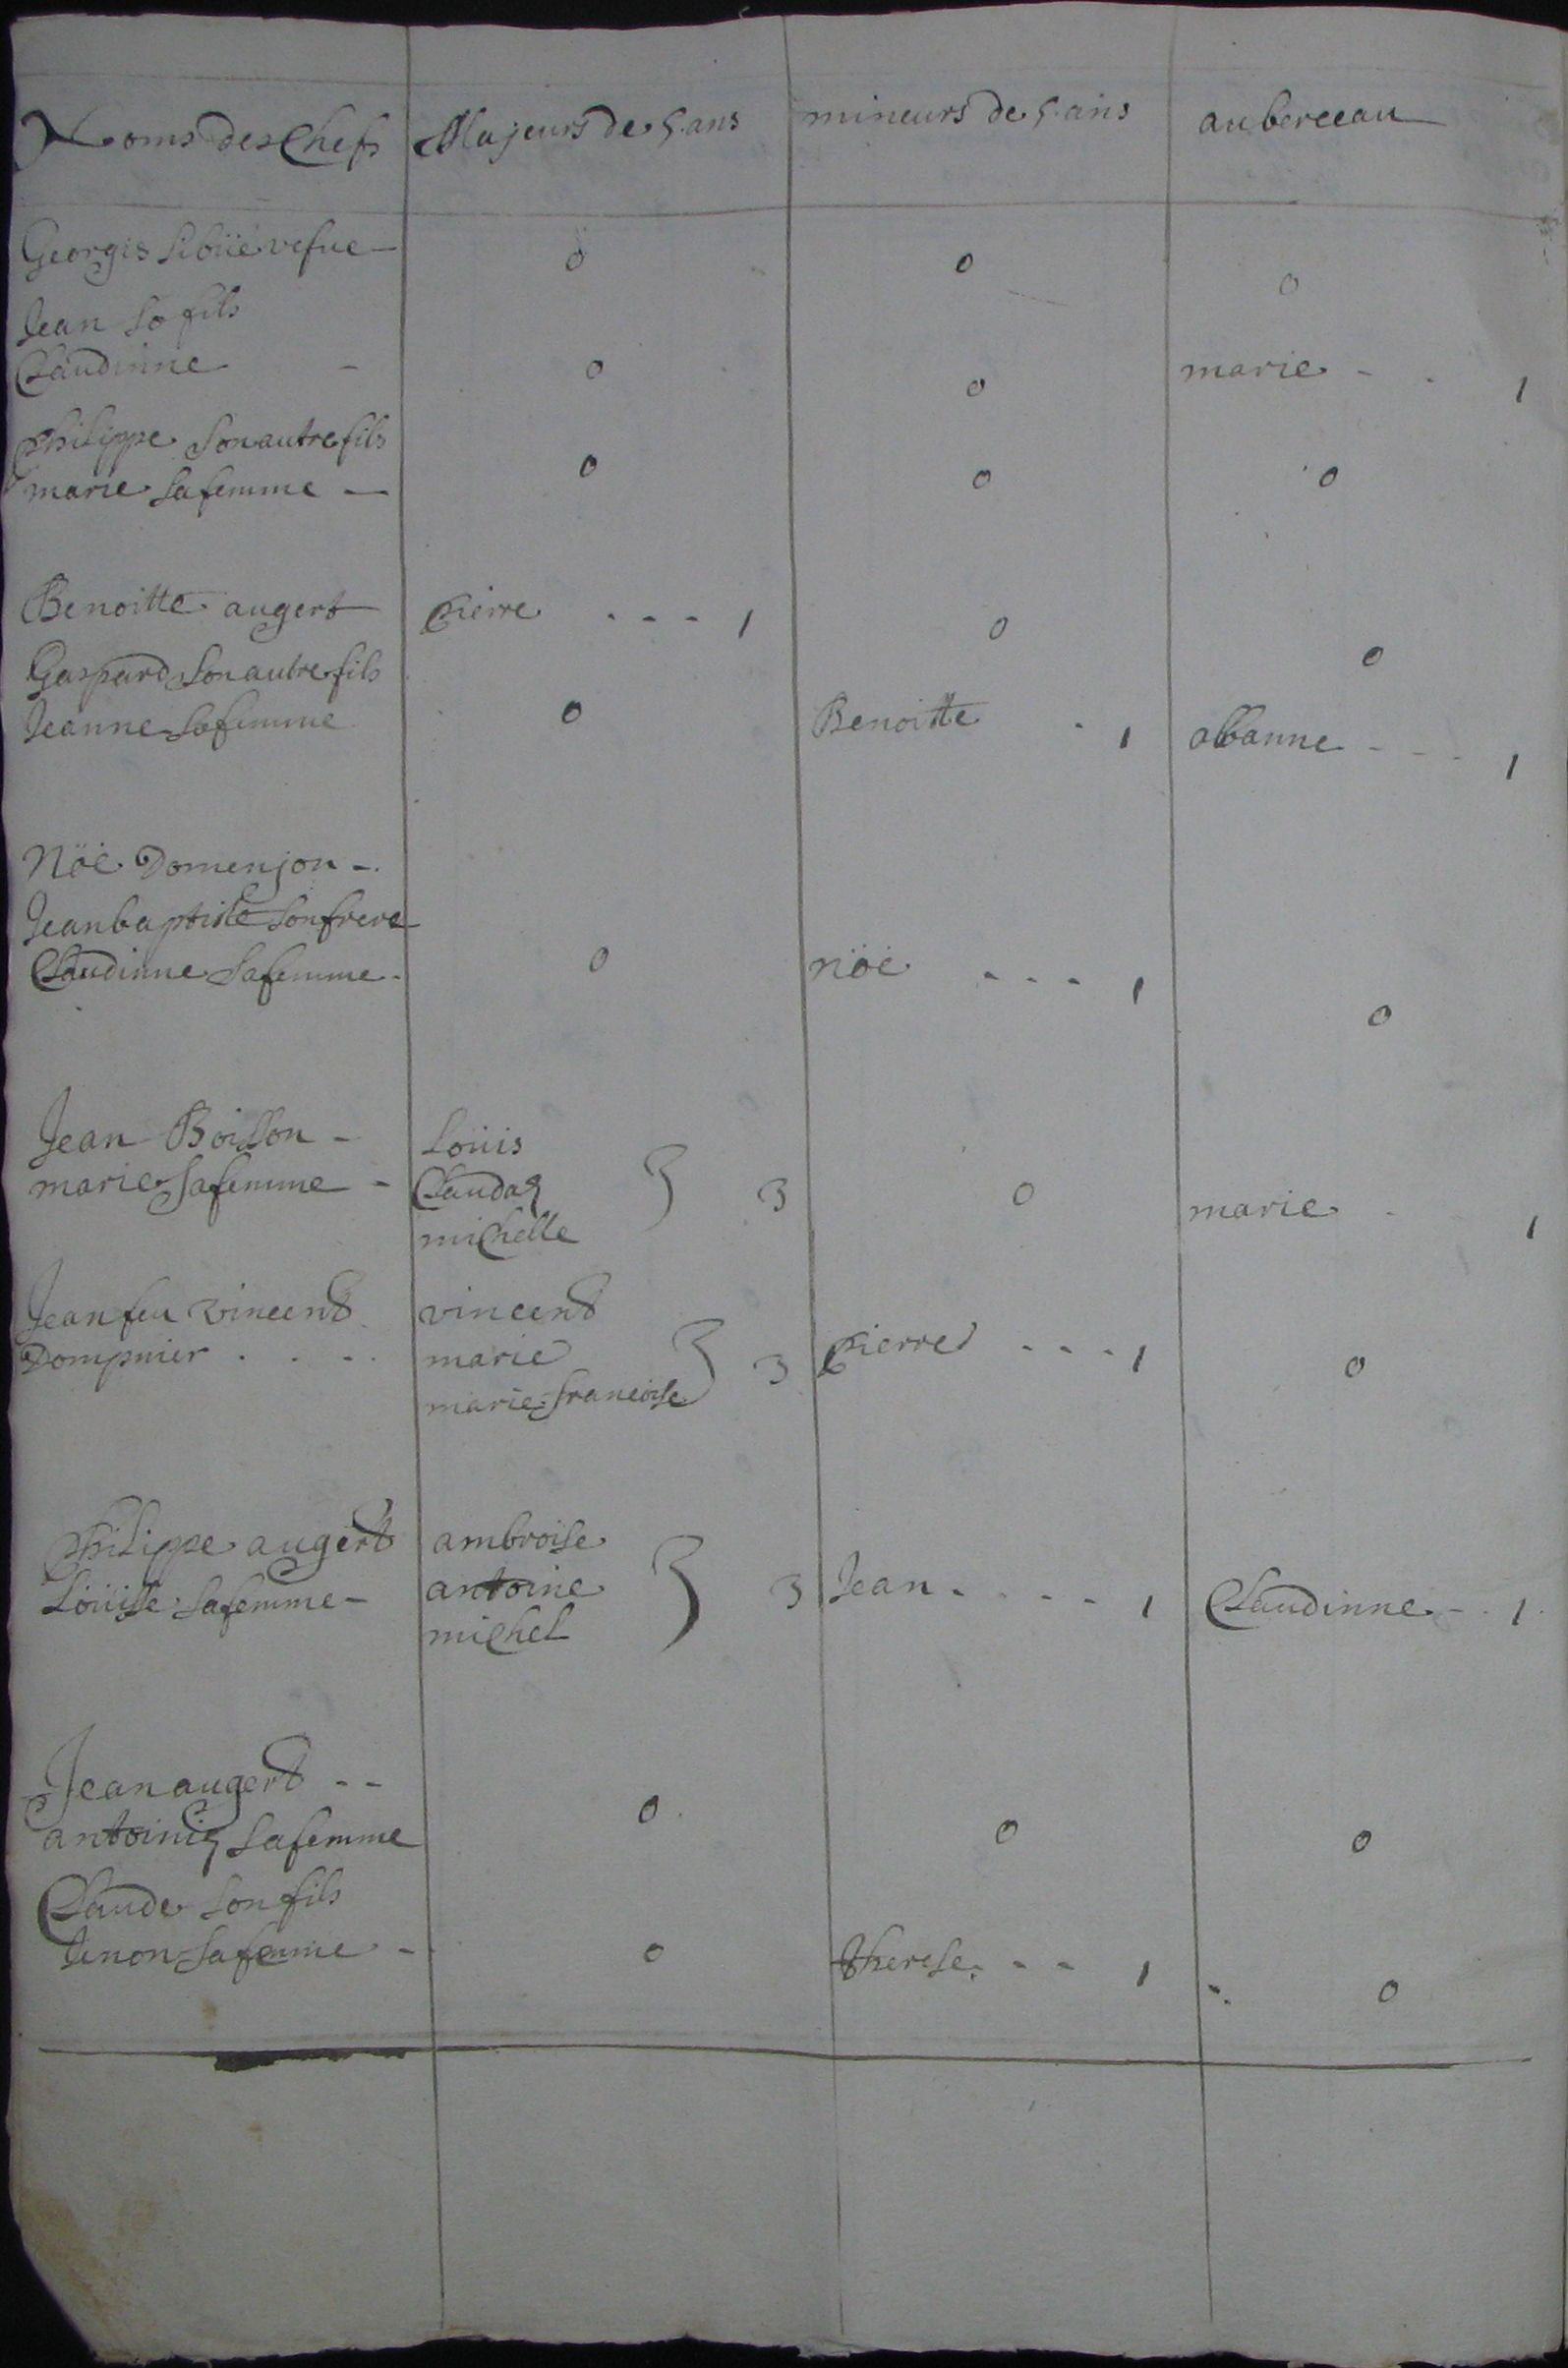 Noms des Chefs Majeurs de 5 ans mineurs de 5 ans au berceau
Georgis vefue 0 0 0
Jean so fils
Claudinne 0 0 marie 1
Philippe son autre fils
marie sa femme 0 0 0
Benoitte augert Pierre 1 0 0
Gaspard son autre fils
Jeanne sa femme 0 Benoitte 1 albanne 1
Nöé Domenjon
Jean baptiste son frere
Claudinne sa femme 0 nöé 1 0
Jean Boisson Loüis
marie sa femme Clauda 3 0 marie 1
michelle
Jean feu vincent vincent
Dompnier marie 3 Pierre 1 0
marie francoise
Philippe augert ambroise
Loüise sa femme antoine 3 Jean 1 Claudinne 1
michel
Jean augert
sa femme 0 0 0
Claude son fils
Jenon sa femme 0 therese 1 0